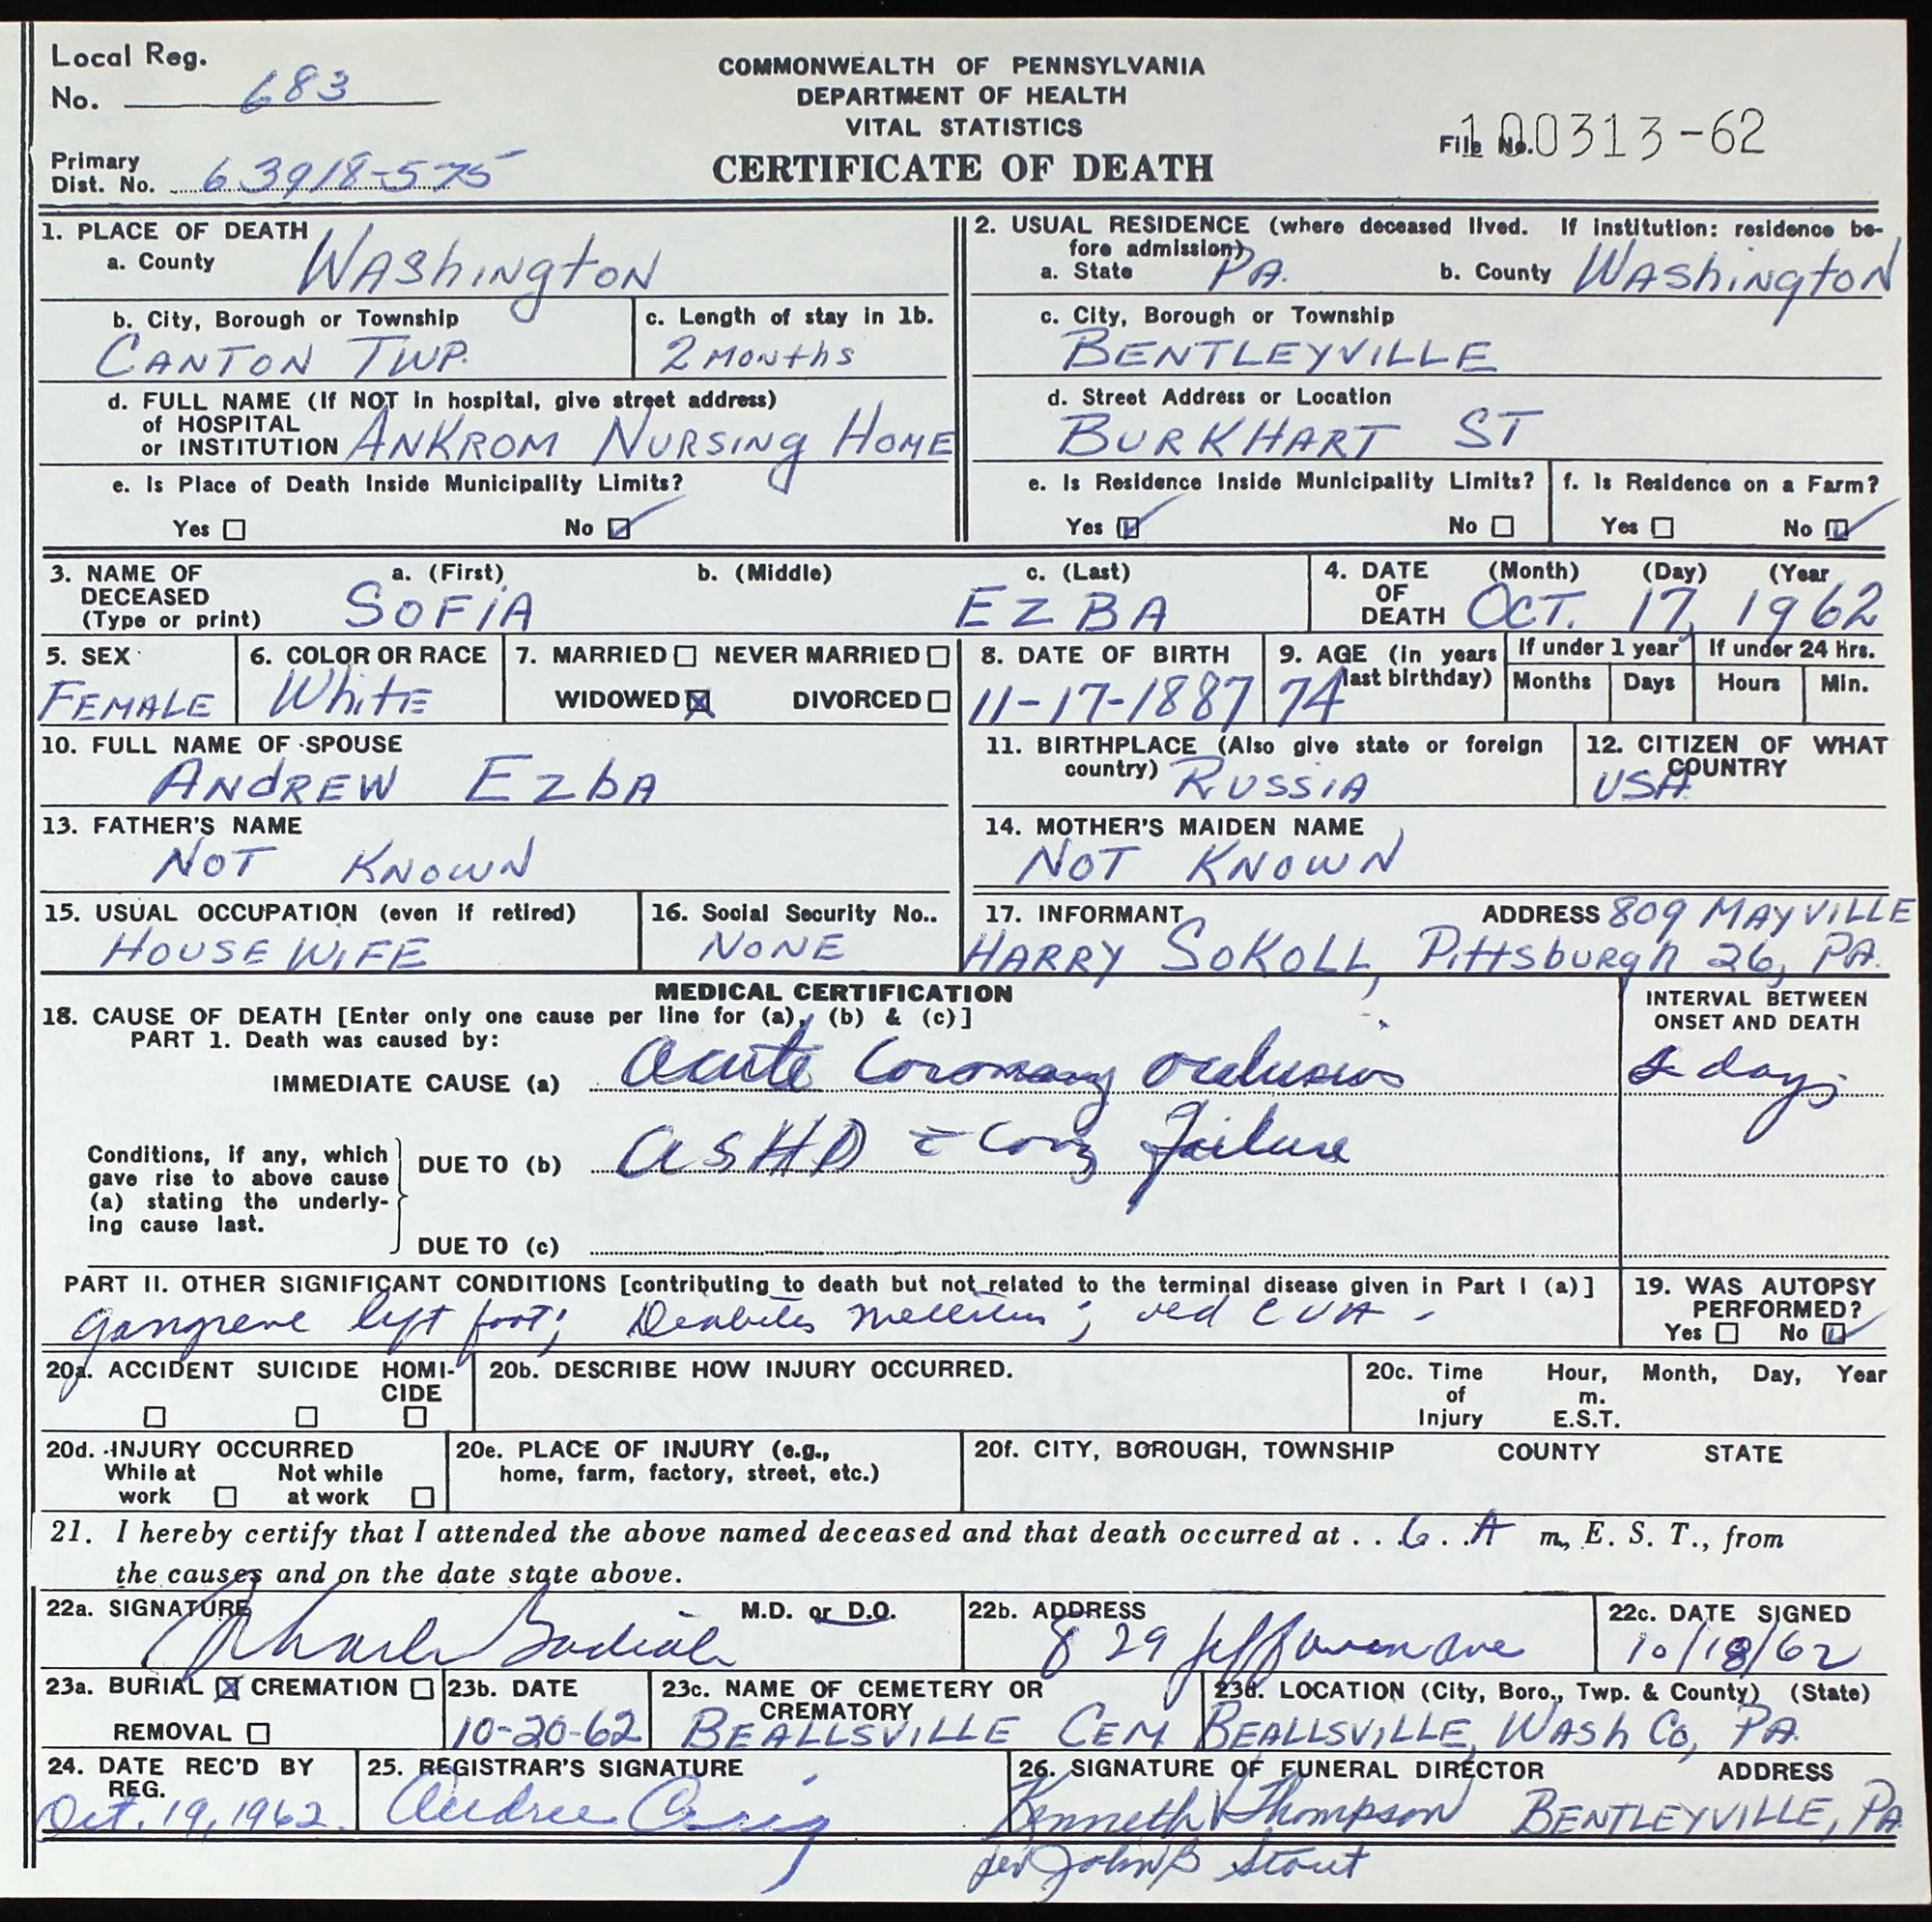 Local Reg.
No. 683
COMMONWEALTH OF PENNSYLVANIA
DEPARTMENT OF HEALTH
VITAL STATISTICS
CERTIFICATE OF DEATH
File No. 100313-62
Primary
Dist. No. 63918-575
1. PLACE OF DEATH
a. County WAShINgtoN
b. City, Borough or Township
CANTON TWP.
c. Length of stay in 1b.
2 MoNths
d. FULL NAME (If NOT in hospital, give street address)
of HOSPITAL
or INSTITUTION ANKROM NURSING HOME
e. Is Place of Death Inside Municipality Limits?
Yes No
2. USUAL RESIDENCE (where deceased lived. If institution: residence be-
fore admission)
a. State PA. b. County WAShiNgtoN
c. City, Borough or Township
BENTLEYVILLE
d. Street Address or Location
BURKHART ST
e. Is Residence Inside Municipality Limits?
Yes No
f. Is Residence on a Farm?
Yes No
3. NAME OF DECEASED (Type or print)
a. (First) b. (Middle) c. (Last)
SOFIA EZBA
4. DATE OF DEATH (Month) (Day) (Year
OCT. 17, 1962
5. SEX
FEMALE
6. COLOR OR RACE
WhitE
7. MARRIED NEVER MARRIED
WIDOWED DIVORCED
8. DATE OF BIRTH
11-17-1887
9. AGE (in years last birthday)
74
If under 1 year
Months Days
If under 24 hrs.
Hours Min.
10. FULL NAME OF SPOUSE
ANdREW EzbA
11. BIRTHPLACE (Also give state or foreign
country) RUSSIA
12. CITIZEN OF WHAT
COUNTRY
USA
13. FATHER'S NAME
NOT KNOWN
14. MOTHER'S MAIDEN NAME
NOT KNOWN
15. USUAL OCCUPATION (even if retired)
HOUSE WIFE
16. Social Security No..
NONE
17. INFORMANT ADDRESS 809 MAYVILLE
HARRY SOKOLL, PittsbuRgh 26, PA.
MEDICAL CERTIFICATION
18. CAUSE OF DEATH [Enter only one cause per line for (a), (b) & (c)]
PART 1. Death was caused by:
IMMEDIATE CAUSE (a) Acute Coronary Occlusion
INTERVAL BETWEEN
ONSET AND DEATH
days
Conditions, if any, which
gave rise to above cause
(a) stating the underly-
ing cause last.
DUE TO (b) ASHD c̄ Cong Failure
DUE TO (c)
PART II. OTHER SIGNIFICANT CONDITIONS [contributing to death but not related to the terminal disease given in Part I (a)]
gangrene left foot; Diabetes Mellitus; old CVA -
19. WAS AUTOPSY
PERFORMED?
Yes No
20a. ACCIDENT SUICIDE HOMI-
CIDE
20b. DESCRIBE HOW INJURY OCCURRED.
20c. Time of Injury Hour, Month, Day, Year
m.
E.S.T.
20d. INJURY OCCURRED
While at work Not while at work
20e. PLACE OF INJURY (e.g.,
home, farm, factory, street, etc.)
20f. CITY, BOROUGH, TOWNSHIP COUNTY STATE
21. I hereby certify that I attended the above named deceased and that death occurred at . . 6 . . A m., E. S. T., from
the causes and on the date state above.
22a. SIGNATURE M.D. or D.O.
22b. ADDRESS
829 Jefferson Ave
22c. DATE SIGNED
10/18/62
23a. BURIAL CREMATION
REMOVAL
23b. DATE
10-20-62
23c. NAME OF CEMETERY OR
CREMATORY
BEALLSVILLE CEM
23d. LOCATION (City, Boro., Twp. & County) (State)
BEALLSVILLE, WASh Co, PA.
24. DATE REC'D BY
REG.
Oct. 19, 1962.
25. REGISTRAR'S SIGNATURE
Craig
26. SIGNATURE OF FUNERAL DIRECTOR ADDRESS
Kenneth Thompson BENTLEYVILLE, PA
per John B Stout